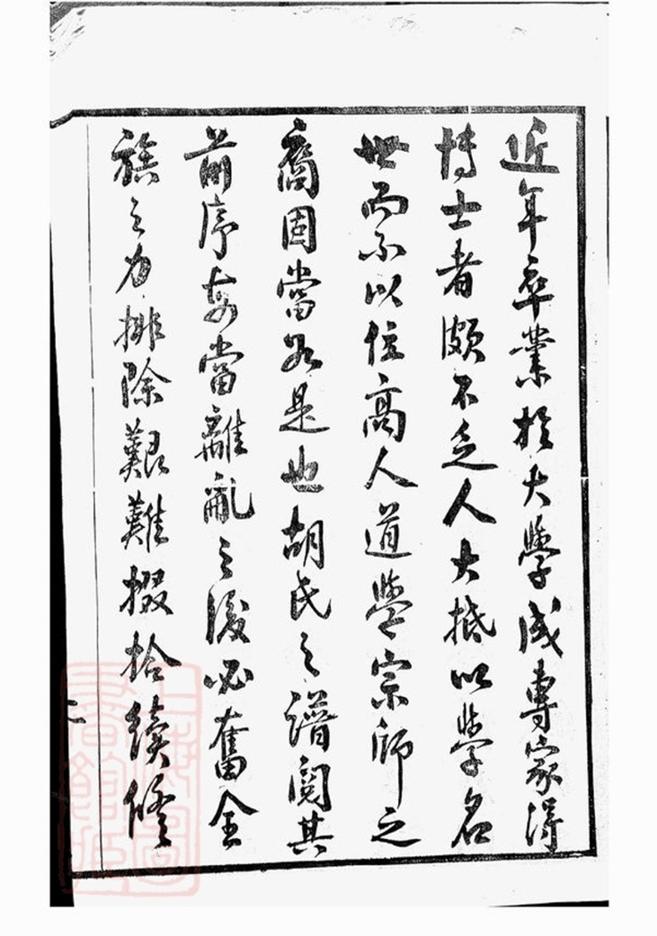 近年卒業於大學成專家得
博士者頗不乏人大抵以學名
世而不以位高人道學宗師之
裔固當如是也胡氏之譜閱其
前序每當離亂之後必奮全
族之力排除艱難掇拾續修